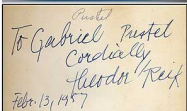 Prestel
To Gabriel Prestel
Cordially
Theodor Reik
Febr. 13, 1957